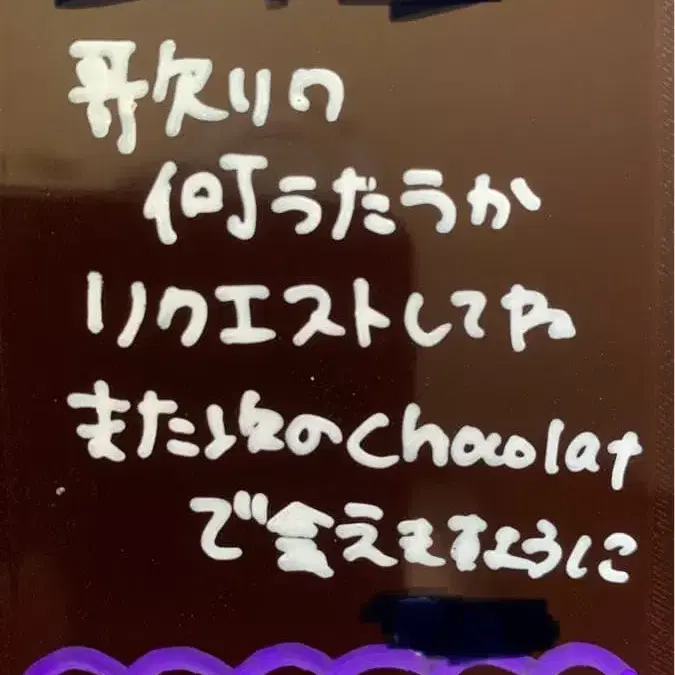 歌りの
何うたうか
リクエストしてね
また次のchocolat
で会えますように